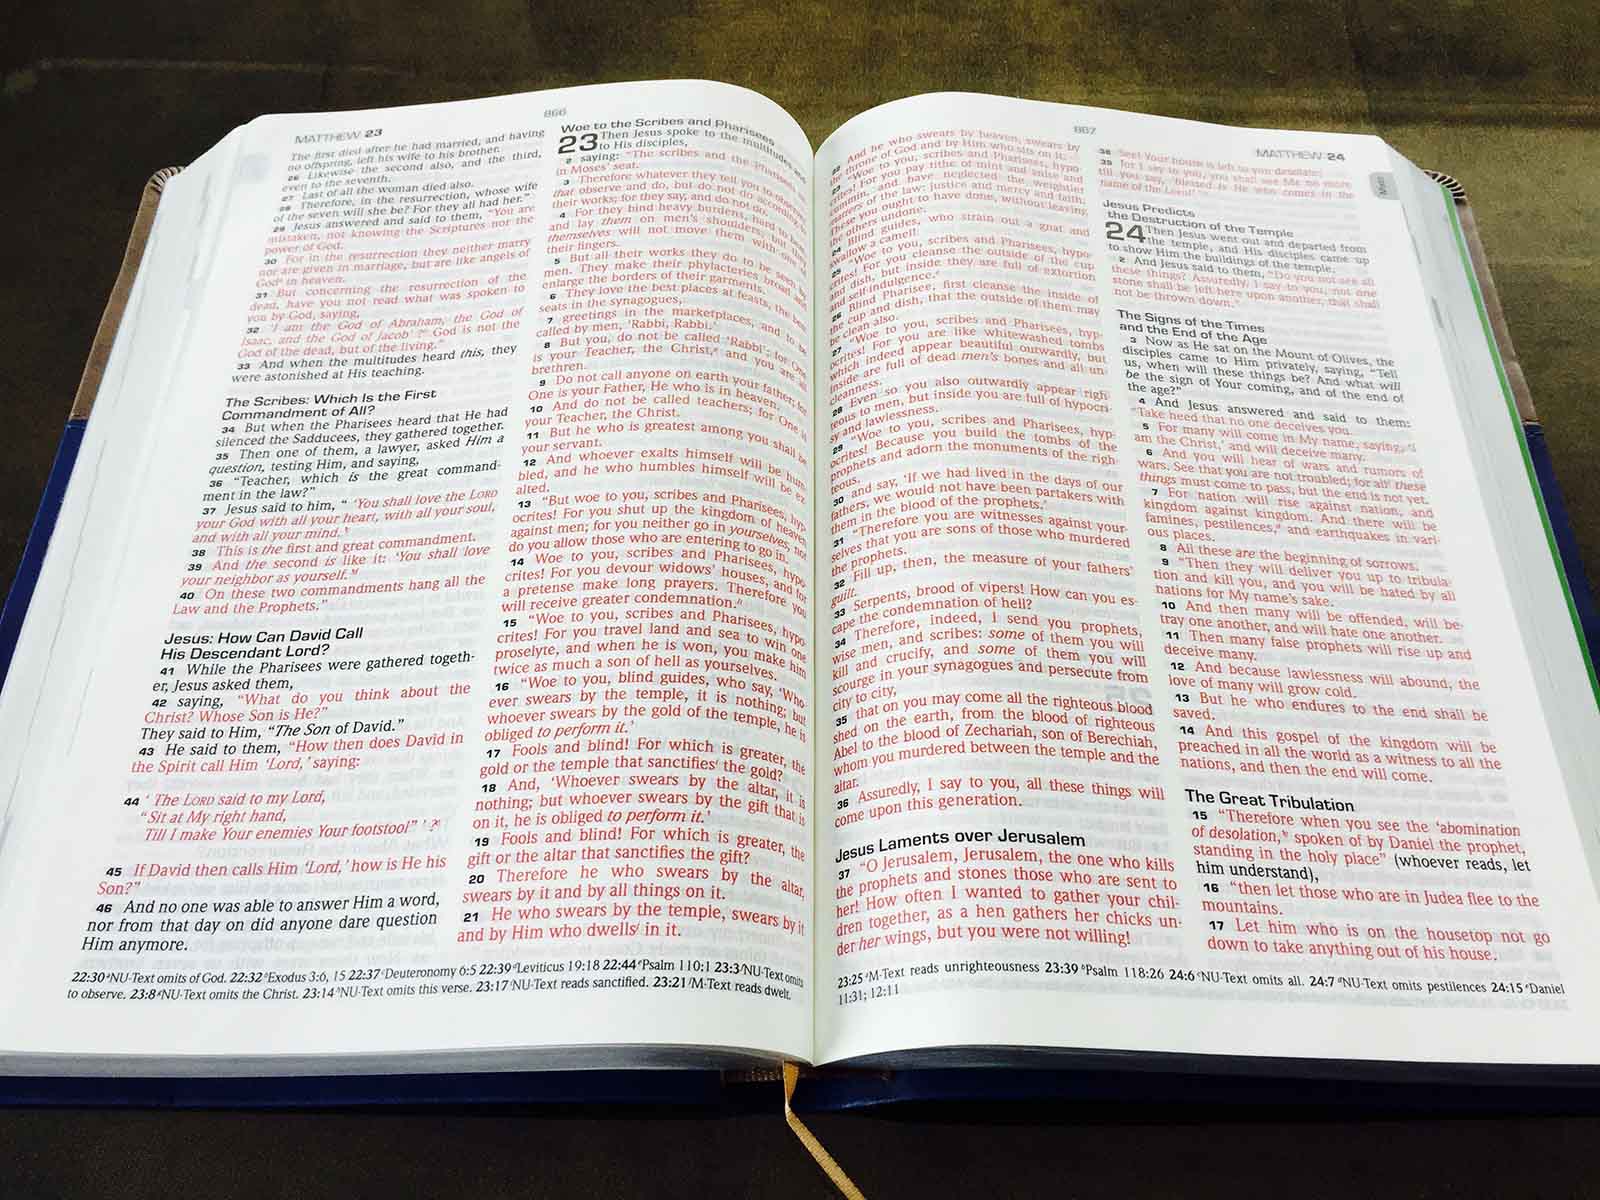 MATTHEW 23
866
The first died after he had married, and having
no offspring, left his wife to his brother.
26 Likewise the second also, and the third,
even to the seventh.
27 Last of all the woman died also.
28 Therefore, in the resurrection, whose wife
of the seven will she be? For they all had her."
29 Jesus answered and said to them, "You are
mistaken, not knowing the Scriptures nor the
power of God.
30 For in the resurrection they neither marry
nor are given in marriage, but are like angels of
God in heaven.
31 But concerning the resurrection of the
dead, have you not read what was spoken to
you by God, saying,
32 'I am the God of Abraham, the God of
Isaac, and the God of Jacob'? God is not the
God of the dead, but of the living."
33 And when the multitudes heard this, they
were astonished at His teaching.
The Scribes: Which Is the First
Commandment of All?
34 But when the Pharisees heard that He had
silenced the Sadducees, they gathered together.
35 Then one of them, a lawyer, asked Him a
question, testing Him, and saying,
36 "Teacher, which is the great command-
ment in the law?"
37 Jesus said to him, " 'You shall love the LORD
your God with all your heart, with all your soul,
and with all your mind.'
38 This is the first and great commandment.
39 And the second is like it: 'You shall love
your neighbor as yourself.'
40 On these two commandments hang all the
Law and the Prophets."
Jesus: How Can David Call
His Descendant Lord?
41 While the Pharisees were gathered togeth-
er, Jesus asked them,
42 saying, "What do you think about the
Christ? Whose Son is He?"
They said to Him, "The Son of David."
43 He said to them, "How then does David in
the Spirit call Him 'Lord,' saying:
44 ' The LORD said to my Lord,
"Sit at My right hand,
Till I make Your enemies Your footstool" ' ?
45 If David then calls Him 'Lord,' how is He his
Son?"
46 And no one was able to answer Him a word,
nor from that day on did anyone dare question
Him anymore.
Woe to the Scribes and Pharisees
23 Then Jesus spoke to the multitudes and
to His disciples,
2 saying: "The scribes and the Pharisees sit
in Moses' seat.
3 Therefore whatever they tell you to observe,
that observe and do, but do not do according to
their works; for they say, and do not do.
4 For they bind heavy burdens, hard to bear,
and lay them on men's shoulders; but they
themselves will not move them with one of
their fingers.
5 But all their works they do to be seen by
men. They make their phylacteries broad and
enlarge the borders of their garments.
6 They love the best places at feasts, the best
seats in the synagogues,
7 greetings in the marketplaces, and to be
called by men, 'Rabbi, Rabbi.'
8 But you, do not be called 'Rabbi'; for One
is your Teacher, the Christ, and you are all
brethren.
9 Do not call anyone on earth your father; for
One is your Father, He who is in heaven.
10 And do not be called teachers; for One is
your Teacher, the Christ.
11 But he who is greatest among you shall be
your servant.
12 And whoever exalts himself will be hum-
bled, and he who humbles himself will be ex-
alted.
13 "But woe to you, scribes and Pharisees, hyp-
ocrites! For you shut up the kingdom of heaven
against men; for you neither go in yourselves, nor
do you allow those who are entering to go in.
14 Woe to you, scribes and Pharisees, hypo-
crites! For you devour widows' houses, and for
a pretense make long prayers. Therefore you
will receive greater condemnation.
15 "Woe to you, scribes and Pharisees, hypo-
crites! For you travel land and sea to win one
proselyte, and when he is won, you make him
twice as much a son of hell as yourselves.
16 "Woe to you, blind guides, who say, 'Who-
ever swears by the temple, it is nothing; but
whoever swears by the gold of the temple, he is
obliged to perform it.'
17 Fools and blind! For which is greater, the
gold or the temple that sanctifies the gold?
18 And, 'Whoever swears by the altar, it is
nothing; but whoever swears by the gift that is
on it, he is obliged to perform it.'
19 Fools and blind! For which is greater, the
gift or the altar that sanctifies the gift?
20 Therefore he who swears by the altar,
swears by it and by all things on it.
21 He who swears by the temple, swears by it
and by Him who dwells in it.
22:30 NU-Text omits of God. 22:32 Exodus 3:6, 15 22:37 Deuteronomy 6:5 22:39 Leviticus 19:18 22:44 Psalm 110:1 23:3 NU-Text omits
to observe. 23:8 NU-Text omits the Christ. 23:14 NU-Text omits this verse. 23:17 NU-Text reads sanctified. 23:21 M-Text reads dwelt.
867
MATTHEW 24
22 And he who swears by heaven, swears by
the throne of God and by Him who sits on it.
23 "Woe to you, scribes and Pharisees, hypo-
crites! For you pay tithe of mint and anise and
cummin, and have neglected the weightier
matters of the law: justice and mercy and faith.
These you ought to have done, without leaving
the others undone.
24 Blind guides, who strain out a gnat and
swallow a camel!
25 "Woe to you, scribes and Pharisees, hypo-
crites! For you cleanse the outside of the cup
and dish, but inside they are full of extortion
and self-indulgence.
26 Blind Pharisee, first cleanse the inside of
the cup and dish, that the outside of them may
be clean also.
27 "Woe to you, scribes and Pharisees, hyp-
ocrites! For you are like whitewashed tombs
which indeed appear beautiful outwardly, but
inside are full of dead men's bones and all un-
cleanness.
28 Even so you also outwardly appear righ-
teous to men, but inside you are full of hypocri-
sy and lawlessness.
29 "Woe to you, scribes and Pharisees, hyp-
ocrites! Because you build the tombs of the
prophets and adorn the monuments of the righ-
teous,
30 and say, 'If we had lived in the days of our
fathers, we would not have been partakers with
them in the blood of the prophets.'
31 "Therefore you are witnesses against your-
selves that you are sons of those who murdered
the prophets.
32 Fill up, then, the measure of your fathers'
guilt.
33 Serpents, brood of vipers! How can you es-
cape the condemnation of hell?
34 Therefore, indeed, I send you prophets,
wise men, and scribes: some of them you will
kill and crucify, and some of them you will
scourge in your synagogues and persecute from
city to city,
35 that on you may come all the righteous blood
shed on the earth, from the blood of righteous
Abel to the blood of Zechariah, son of Berechiah,
whom you murdered between the temple and the
altar.
36 Assuredly, I say to you, all these things will
come upon this generation.
Jesus Laments over Jerusalem
37 "O Jerusalem, Jerusalem, the one who kills
the prophets and stones those who are sent to
her! How often I wanted to gather your chil-
dren together, as a hen gathers her chicks un-
der her wings, but you were not willing!
38 See! Your house is left to you desolate;
39 for I say to you, you shall see Me no more
till you say, 'Blessed is He who comes in the
name of the LORD!'
Jesus Predicts
the Destruction of the Temple
24 Then Jesus went out and departed from
the temple, and His disciples came up
to show Him the buildings of the temple.
2 And Jesus said to them, "Do you not see all
these things? Assuredly, I say to you, not one
stone shall be left here upon another, that shall
not be thrown down."
The Signs of the Times
and the End of the Age
3 Now as He sat on the Mount of Olives, the
disciples came to Him privately, saying, "Tell
us, when will these things be? And what will
be the sign of Your coming, and of the end of
the age?"
4 And Jesus answered and said to them:
"Take heed that no one deceives you.
5 For many will come in My name, saying, 'I
am the Christ,' and will deceive many.
6 And you will hear of wars and rumors of
wars. See that you are not troubled; for all these
things must come to pass, but the end is not yet.
7 For nation will rise against nation, and
kingdom against kingdom. And there will be
famines, pestilences, and earthquakes in vari-
ous places.
8 All these are the beginning of sorrows.
9 "Then they will deliver you up to tribula-
tion and kill you, and you will be hated by all
nations for My name's sake.
10 And then many will be offended, will be-
tray one another, and will hate one another.
11 Then many false prophets will rise up and
deceive many.
12 And because lawlessness will abound, the
love of many will grow cold.
13 But he who endures to the end shall be
saved.
14 And this gospel of the kingdom will be
preached in all the world as a witness to all the
nations, and then the end will come.
The Great Tribulation
15 "Therefore when you see the 'abomination
of desolation,' spoken of by Daniel the prophet,
standing in the holy place" (whoever reads, let
him understand),
16 "then let those who are in Judea flee to the
mountains.
17 Let him who is on the housetop not go
down to take anything out of his house.
23:25 M-Text reads unrighteousness 23:39 Psalm 118:26 24:6 NU-Text omits all. 24:7 NU-Text omits pestilences 24:15 Daniel
11:31; 12:11